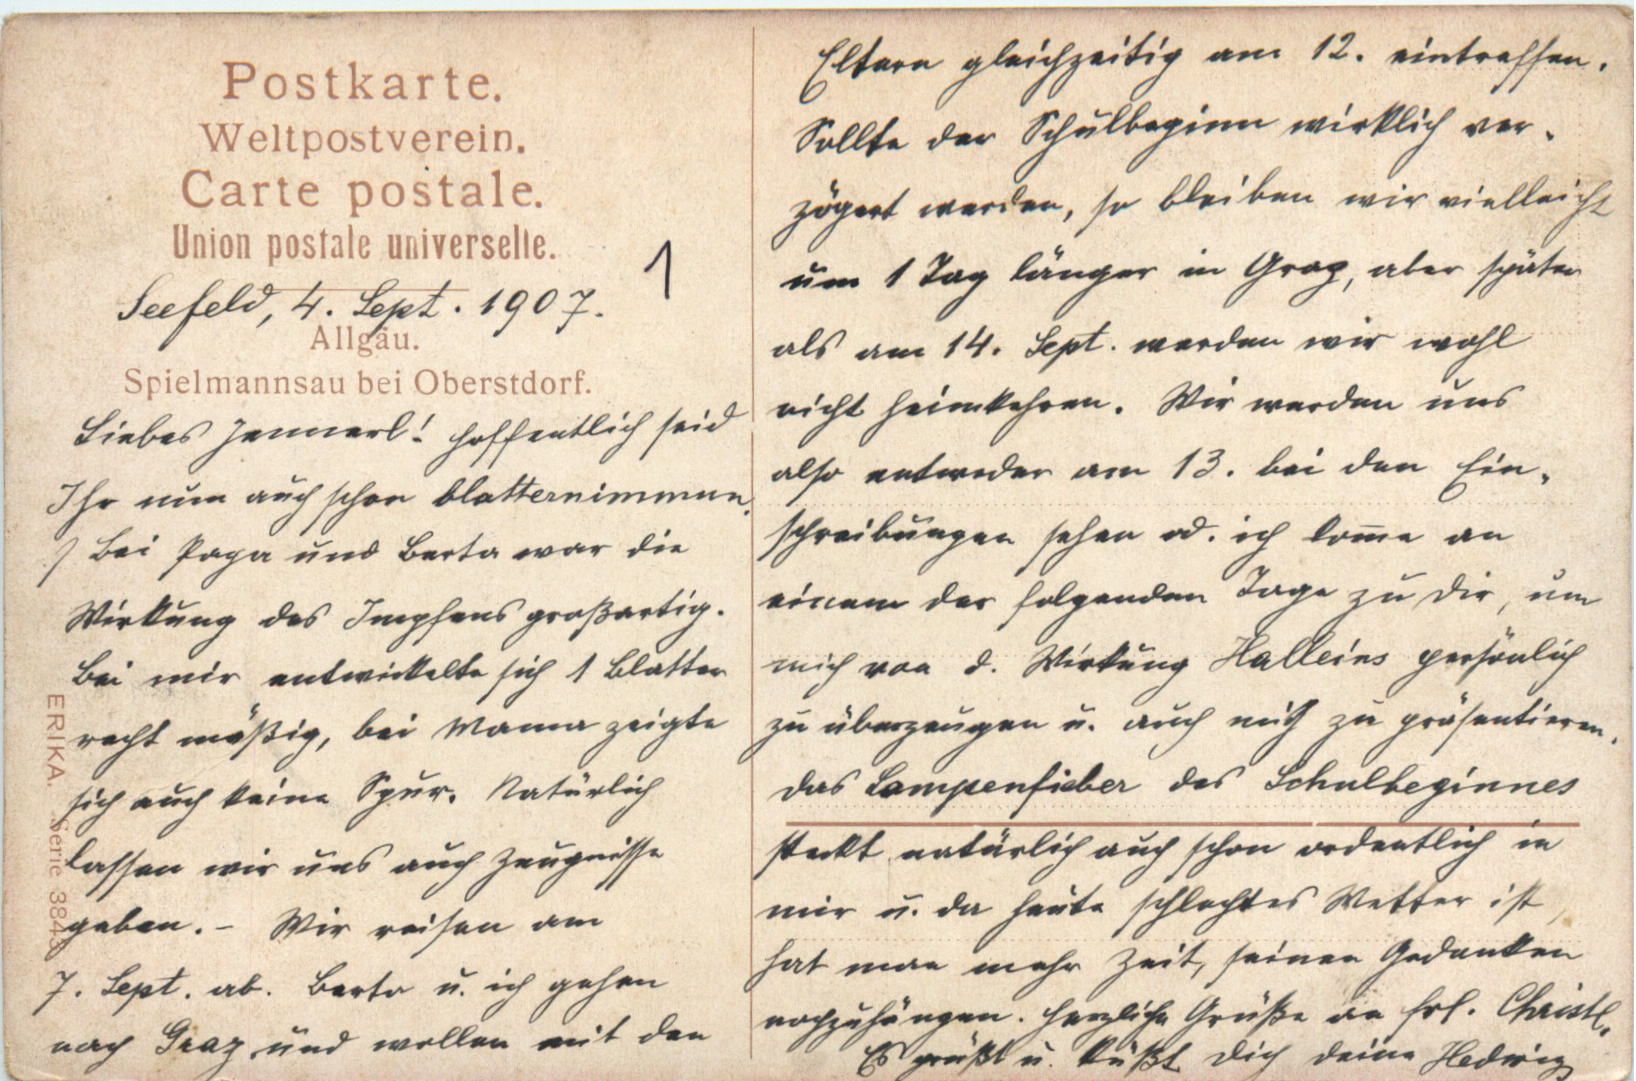 Postkarte.
Weltpostverein.
Carte postale.
Union postale universelle.
1
Seefeld, 4. Sept. 1907.
Allgäu.
Spielmannsau bei Oberstdorf.
Liebes Jennerl! Hoffentlich seid
Ihr nun auch schon blatternimmun.
Bei Papa und Berta war die
Wirkung des Impfens großartig.
Bei mir entwickelte sich 1 Blatter
recht mäßig, bei Mama zeigte
sich auch keine Spur. Natürlich
lassen wir uns auch Zeugnisse
geben. – Wir reisen am
7. Sept. ab. Berta u. ich gehen
nach Graz und wollen mit den
ERIKA. Serie 3843
Eltern gleichzeitig am 12. eintreffen.
Sollte der Schulbeginn wirklich ver-
zögert werden, so bleiben wir vielleicht
um 1 Tag länger in Graz, aber später
als am 14. Sept. werden wir wohl
nicht heimkehren. Wir werden uns
also entweder am 13. bei den Ein-
schreibungen sehen od. ich kom̅e an
einem der folgenden Tage zu Dir, um
mich von d. Wirkung Halleins persönlich
zu überzeugen u. auch mich zu präsentieren.
Das Lampenfieber des Schulbeginnes
steckt natürlich auch schon ordentlich in
mir u. da heute schlechtes Wetter ist,
hat man mehr Zeit, seinen Gedanken
nachzuhängen. Herzliche Grüße an Frl. Christl.
Es grüßt u. küßt Dich deine Hedwig